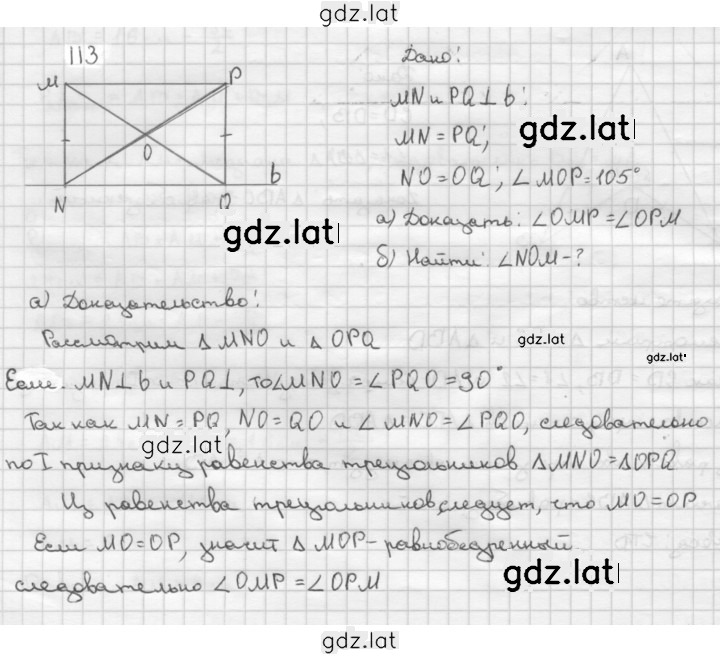 gdz.lat
113
M P
O
N Q b
Дано:
MN и PQ⊥b;
MN=PQ;
gdz.lat
NO=OQ; ∠MOP=105°
gdz.lat
а) Доказать: ∠OMP=∠OPM
б) Найти: ∠NOM-?
а) Доказательство:
Рассмотрим △MNO и △OPQ
gdz.lat
gdz.lat
Если MN⊥b и PQ⊥, то ∠MNO=∠PQO=90°
Так как MN=PQ, NO=QO и ∠MNO=∠PQO, следовательно
gdz.lat
по I признаку равенства треугольников △MNO=△OPQ
Из равенства треугольников, следует, что MO=OP
gdz.lat
Если MO=OP, значит △MOP-равнобедренный
следовательно ∠OMP=∠OPM
gdz.lat
gdz.lat